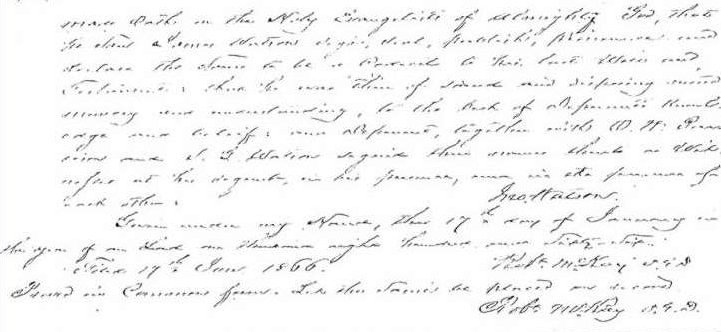 made Oath on the Holy Evangelists of Almighty God, that
he saw James Watson sign, seal, publish, Pronounce and
declare the same to be a Codicil to his last Will and
Testament: that he was then of sound and disposing mind
memory and understanding, to the best of Deponents Knowl-
edge and belief: and Deponent, together with W. H.
and J. F. Watson signed their names thereto as Wit-
nesses at his request, in his presence, and in the presence of
each other.
Jno. Watson.
Given under my Hand, this 17th day of January in
the year of our Lord one thousand eight hundred and sixty-six.
Filed 17th Jany 1866. Robt McKay
Proved in Common form. Let the same be placed on record.
Robt McKay